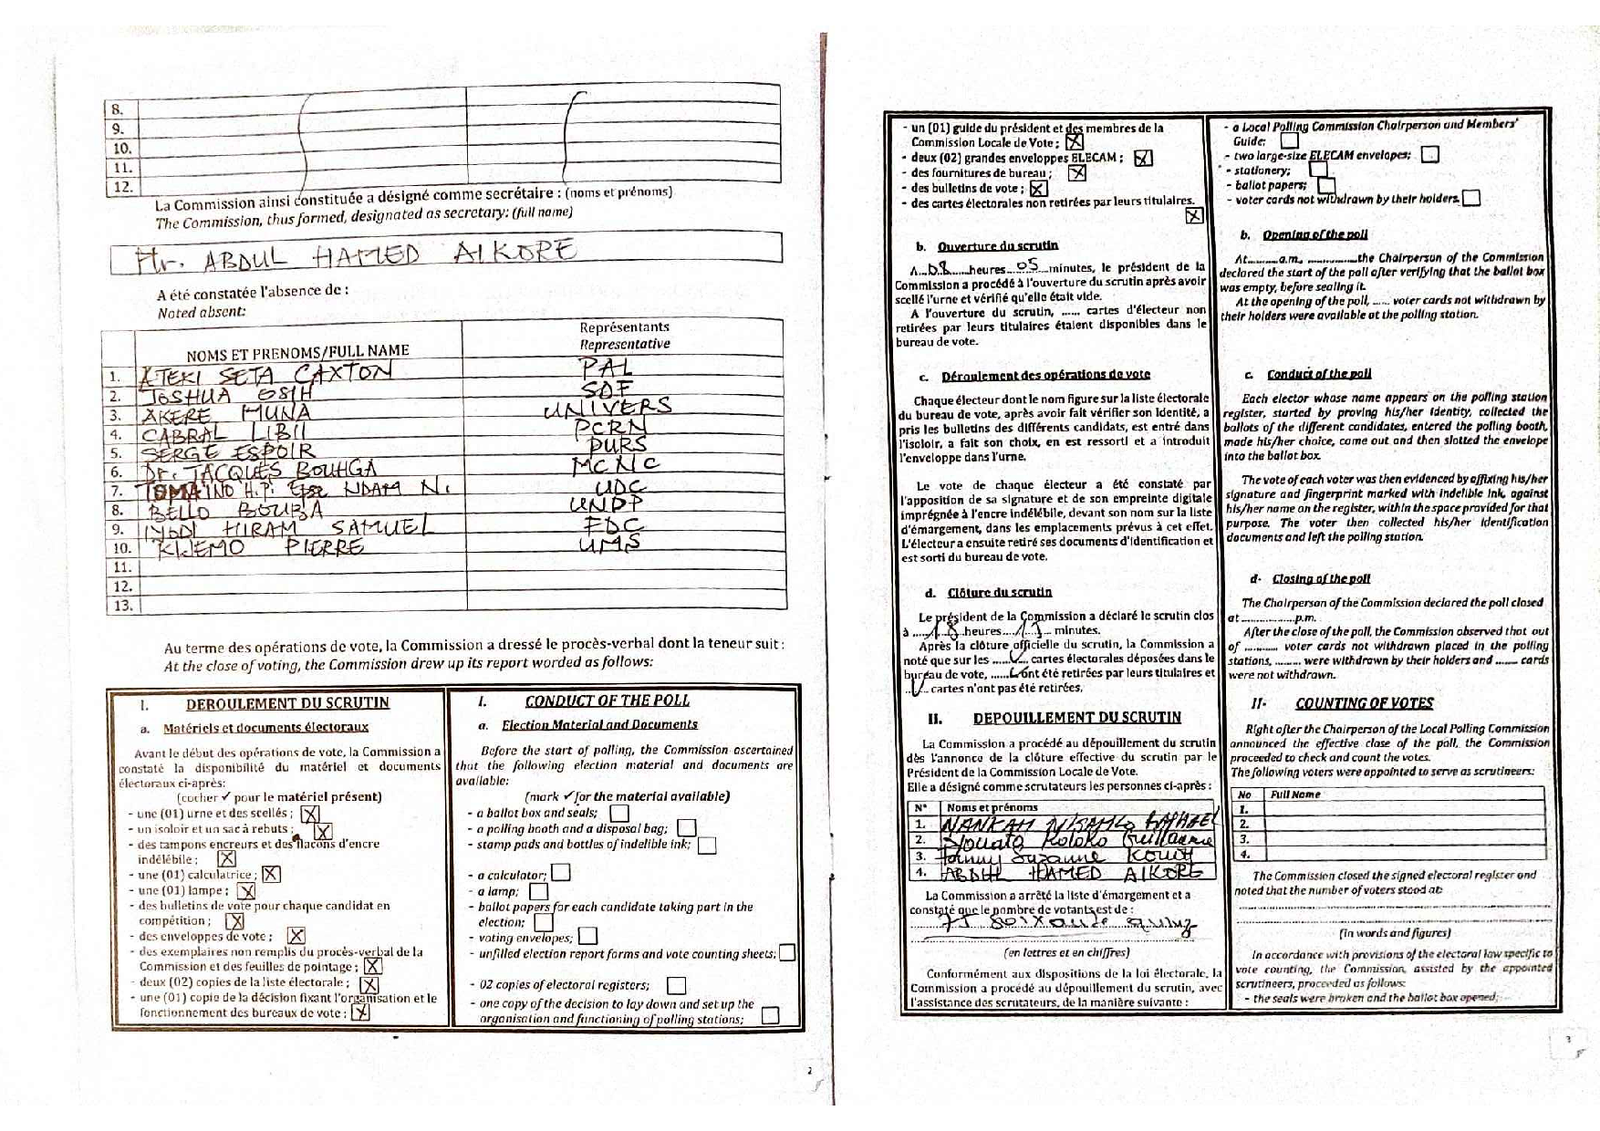 8.
9.
10.
11.
12.
La Commission ainsi constituée a désigné comme secrétaire : (noms et prénoms)
The Commission, thus formed, designated as secretary: (full name)
Mr. ABDUL HAMED AIKORE
A été constatée l'absence de :
Noted absent:
NOMS ET PRENOMS/FULL NAME
Représentants
Representative
1. ATEKI SETA CAXTON PAL
2. JOSHUA OSIH SDF
3. AKERE MUNA UNIVERS
4. CABRAL LIBII PCRN
5. SERGE ESPOIR PURS
6. Dr. JACQUES BOUHGA MCNC
7. TOMAINO H.P. Epse NDAM N. UDC
8. BELLO BOUBA UNDP
9. IYODI HIRAM SAMUEL FDC
10. KWEMO PIERRE UMS
11.
12.
13.
Au terme des opérations de vote, la Commission a dressé le procès-verbal dont la teneur suit :
At the close of voting, the Commission drew up its report worded as follows:
I. DEROULEMENT DU SCRUTIN
a. Matériels et documents électoraux
Avant le début des opérations de vote, la Commission a
constaté la disponibilité du matériel et documents
électoraux ci-après:
(cocher ✓ pour le matériel présent)
- une (01) urne et des scellés ; ☒
- un isoloir et un sac à rebuts ; ☒
- des tampons encreurs et des flacons d'encre
indélébile ; ☒
- une (01) calculatrice ; ☒
- une (01) lampe ; ☒
- des bulletins de vote pour chaque candidat en
compétition ; ☒
- des enveloppes de vote ; ☒
- des exemplaires non remplis du procès-verbal de la
Commission et des feuilles de pointage ; ☒
- deux (02) copies de la liste électorale ; ☒
- une (01) copie de la décision fixant l'organisation et le
fonctionnement des bureaux de vote ; ☒
I. CONDUCT OF THE POLL
a. Election Material and Documents
Before the start of polling, the Commission ascertained
that the following election material and documents are
available:
(mark ✓ for the material available)
- a ballot box and seals; ☐
- a polling booth and a disposal bag; ☐
- stamp pads and bottles of indelible ink; ☐
- a calculator; ☐
- a lamp; ☐
- ballot papers for each candidate taking part in the
election; ☐
- voting envelopes; ☐
- unfilled election report forms and vote counting sheets; ☐
- 02 copies of electoral registers; ☐
- one copy of the decision to lay down and set up the
organisation and functioning of polling stations; ☐
2
- un (01) guide du président et des membres de la
Commission Locale de Vote ; ☒
- deux (02) grandes enveloppes ELECAM ; ☒
- des fournitures de bureau ; ☒
- des bulletins de vote ; ☒
- des cartes électorales non retirées par leurs titulaires.
☒
b. Ouverture du scrutin
A 08 heures 05 minutes, le président de la
Commission a procédé à l'ouverture du scrutin après avoir
scellé l'urne et vérifié qu'elle était vide.
A l'ouverture du scrutin, ...... cartes d'électeur non
retirées par leurs titulaires étaient disponibles dans le
bureau de vote.
c. Déroulement des opérations de vote
Chaque électeur dont le nom figure sur la liste électorale
du bureau de vote, après avoir fait vérifier son identité, a
pris les bulletins des différents candidats, est entré dans
l'isoloir, a fait son choix, en est ressorti et a introduit
l'enveloppe dans l'urne.
Le vote de chaque électeur a été constaté par
l'apposition de sa signature et de son empreinte digitale
imprégnée à l'encre indélébile, devant son nom sur la liste
d'émargement, dans les emplacements prévus à cet effet.
L'électeur a ensuite retiré ses documents d'identification et
est sorti du bureau de vote.
d. Clôture du scrutin
Le président de la Commission a déclaré le scrutin clos
à 18 heures 13 minutes.
Après la clôture officielle du scrutin, la Commission a
noté que sur les ...... cartes électorales déposées dans le
bureau de vote, ...... ont été retirées par leurs titulaires et
...... cartes n'ont pas été retirées.
II. DEPOUILLEMENT DU SCRUTIN
La Commission a procédé au dépouillement du scrutin
dès l'annonce de la clôture effective du scrutin par le
Président de la Commission Locale de Vote.
Elle a désigné comme scrutateurs les personnes ci-après :
N° Noms et prénoms
1. NANKAM
2. Koloko Guillaume
3. Suzanne
4. ABDUL HAMED AIKORE
La Commission a arrêté la liste d'émargement et a
constaté que le nombre de votants est de :
75 soixante quinz
(en lettres et en chiffres)
Conformément aux dispositions de la loi électorale, la
Commission a procédé au dépouillement du scrutin, avec
l'assistance des scrutateurs, de la manière suivante :
- a Local Polling Commission Chairperson and Members'
Guide; ☐
- two large-size ELECAM envelopes; ☐
- stationery; ☐
- ballot papers; ☐
- voter cards not withdrawn by their holders. ☐
b. Opening of the poll
At..........a.m. ...............the Chairperson of the Commission
declared the start of the poll after verifying that the ballot box
was empty, before sealing it.
At the opening of the poll, ...... voter cards not withdrawn by
their holders were available at the polling station.
c. Conduct of the poll
Each elector whose name appears on the polling station
register, started by proving his/her identity, collected the
ballots of the different candidates, entered the polling booth,
made his/her choice, came out and then slotted the envelope
into the ballot box.
The vote of each voter was then evidenced by affixing his/her
signature and fingerprint marked with indelible ink, against
his/her name on the register, within the space provided for that
purpose. The voter then collected his/her identification
documents and left the polling station.
d- Closing of the poll
The Chairperson of the Commission declared the poll closed
at ...............p.m.
After the close of the poll, the Commission observed that out
of .......... voter cards not withdrawn placed in the polling
stations, ......... were withdrawn by their holders and ........ cards
were not withdrawn.
II- COUNTING OF VOTES
Right after the Chairperson of the Local Polling Commission
announced the effective close of the poll, the Commission
proceeded to check and count the votes.
The following voters were appointed to serve as scrutineers:
No Full Name
1.
2.
3.
4.
The Commission closed the signed electoral register and
noted that the number of voters stood at:
(in words and figures)
In accordance with provisions of the electoral law specific to
vote counting, the Commission, assisted by the appointed
scrutineers, proceeded as follows:
- the seals were broken and the ballot box opened;
3